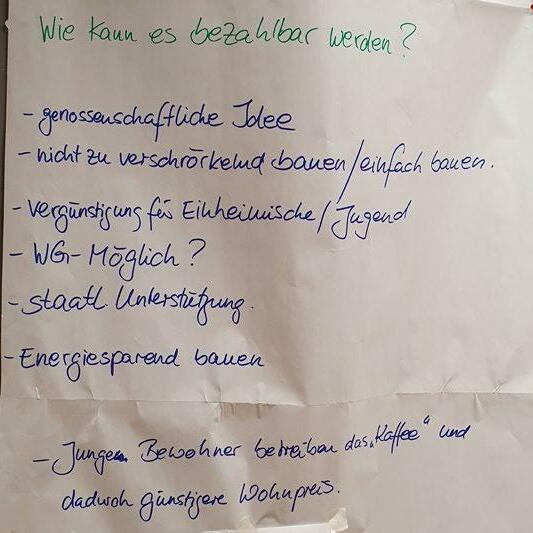 Wie kann es bezahlbar werden?
- genossenschaftliche Idee
- nicht zu verschröckelnd bauen/einfach bauen.
- vergünstigung für Einheimische/Jugend
- WG-Möglich?
- staatl. Unterstützung.
- Energiesparend bauen
- Junge Bewohner betreiben das „Kaffee“ und
dadurch günstigere Wohnpreis.